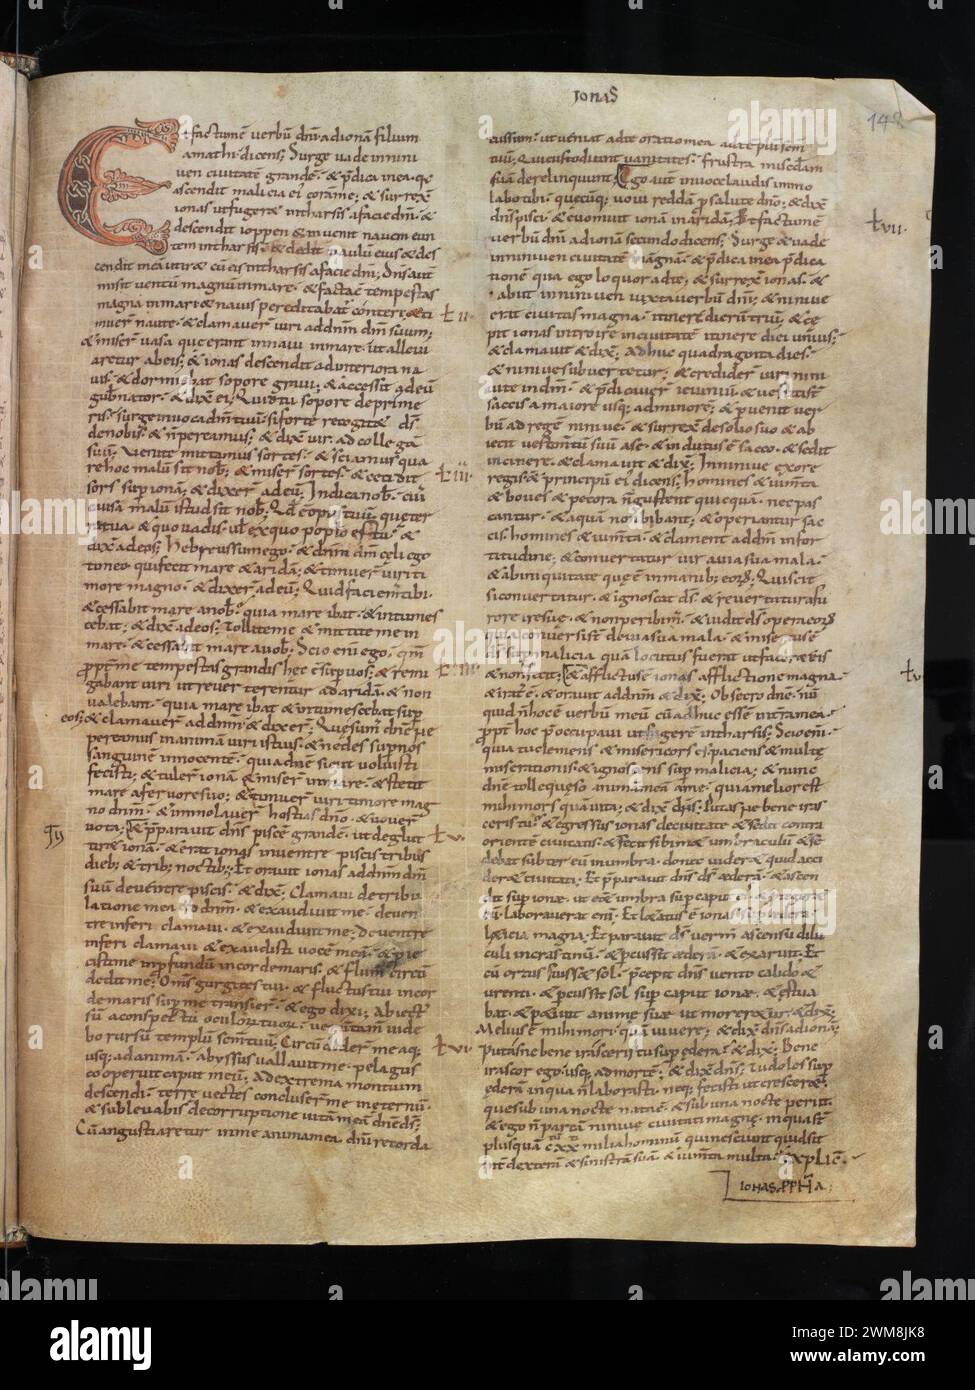 Jonas
148
Et factum ē verbū dn̄i ad ionā filium
amathi dicens; Surge vade in nini
ven civitatē grandē· & p̄dica in ea· q̄
ascendit malicia ei' corā me; & surrex̄
ionas ut fugeret in tharsis a facie dn̄i· &
descendit ioppen & invenit navem eun
tem in tharsis· & dedit naulū eius & des
cendit in eā ut iret cū eis in tharsis a facie dn̄i; Dn̄s aut̄
misit ventū magnū in mare· & facta ē tempestas
magna in mari & navis periclitabat' conteri; & ti
muer̄ naute· & clamaver̄ viri ad dn̄m suum;
& miser̄ vasa que erant in navi in mare· ut allevi
aretur ab eis; & ionas descendit ad interiora na
vis· & dormiebat sopore gravi; & accessit ad eū
gub̄nator· & dix̄ ei; Quid tu sopore deprime
ris· surge invoca dm̄ tuū; si forte recogitet ds̄
de nobis· & n̄ pereamus; & dix̄ vir· ad collegā
suū; Venite mittamus sortes· & sciamus qua
re hoc malū sit nob̄; & miser̄ sortes· & cecidit
sors sup ionā; & dixer̄ ad eū; Indica nob̄· cui'
causa malū istud sit nob̄; Qd̄ ē opus tuū· que ter
ra tua· & quo vadis· ul̄ ex quo poplo es tu· &
dix̄ ad eos; hebreus sum ego· & dn̄m dm̄ celi ego
timeo qui fecit mare & aridā; & timuer̄ viri ti
more magno· & dixer̄ ad eū; Quid faciem' tibi·
& cessabit mare a nob̄· quia mare ibat & intumes
cebat; & dix̄ ad eos; Tollite me & mittite me in
mare· & cessabit mare a vob̄· Scio eni ego· qm̄
ppt̄ me tempestas grandis hec ē sup vos; & remi
gabant viri ut reverterentur ad aridā· & non
valebant· quia mare ibat & intumescebat sup
eos; & clamaver̄ ad dn̄m· & dixer̄; Quesum' dn̄e ne
pereamus in animā viri istius· & ne des sup nos
sanguinē innocentē· quia dn̄e sicut voluisti
fecisti; & tuler̄ ionā & miser̄ in mare· & stetit
mare a fervore suo; & timuer̄ viri timore mag
no dn̄m· & immolaver̄ hostias dn̄o· & vover̄
vota; & p̄paravit dn̄s piscē grandē· ut deglut
tiret ionā· & erat ionas in ventre piscis tribus
dieb; & trib; noctib;; Et oravit ionas ad dn̄m dm̄
suū de ventre piscis· & dix̄; Clamavi de tribu
latione mea ad dn̄m· & exaudivit me· de ven
tre inferi clamavi· & exaudivit me; de ventre
inferi clamavi & exaudisti vocē meā· & pie
cisti me in pfundū in corde maris· & flum̄ circū
dedit me; Om̄s gurgites tui· & fluctus tui in cor
de maris sup me transier̄· & ego dixi; Abiect'
sū a conspectu oculor̄ tuor̄· verūtam̄ vide
bo rursū templū scm̄ tuū; Circūdeder̄ me aq̄;
usq; ad animā· abyssus vallavit me· pelagus
cooperuit caput meū; Ad extrema montium
descendi· terre vectes concluser̄ me in eternū·
& sublevabis de corruptione vitā meā dn̄e ds̄;
Cū angustiaretur in me anima mea dn̄i recorda
tus sum· ut veniat ad te oratio mea ad te plū scm̄
tuū; Qui custodiunt vanitates· frustra miscdam
suā derelinquunt; Ego aut̄ in voce laudis immo
labo tibi· quecūq; vovi reddā p salute dn̄o; & dix̄
dn̄s pisci· & evomuit ionā in aridā; Et factum ē
verbū dn̄i ad ionā secundo dicens; Surge & vade
in niniven civitatē magnā· & p̄dica in ea p̄dica
tionē qua ego loquor ad te; & surrex̄ ionas· &
abiit in niniven iuxta verbū dn̄i; & ninive
erat civitas magna· itinere dierū triū; & ce
pit ionas introire in civitatē itinere diei unius;
& clamavit & dix̄; Adhuc quadraginta dies·
& ninive subvertetur; & credider̄ viri nini
vite in dm̄· & p̄dicaver̄ ieiuniū· & vestiti st̄
saccis a maiore usq; ad minorē; & pvenit ver
bū ad regē ninive· & surrex̄ de solio suo & ab
iecit vestim̄tū suū a se· & indutus ē sacco· & sedit
in cinere· & clamavit & dix̄; In ninive ex ore
regis & principū ei' dicens; homines & ium̄ta
& boves & pecora n̄ gustent quicquā· nec pas
cantur· & aquā non bibant; & operiantur sac
cis homines & ium̄ta· & clament ad dn̄m in for
titudine; & convertatur vir a via sua mala·
& ab iniquitate que ē in manib; eor̄; Quis scit
si convertatur· & ignoscat ds̄· & revertatur a fu
rore ire sue· & non peribim'· & vidit ds̄ opera eor̄
quia conversi st̄ de via sua mala· & misert' ē
ds̄ sup malicia quā locutus fuerat ut facer& eis
& non fecit; & afflictus ē ionas afflictione magna·
& irat' ē· & oravit ad dn̄m & dix̄; Obsecro dn̄e· nū
quid n̄ hoc ē verbū meū cū adhuc essē in tr̄a mea·
ppt hoc p̄occupavi ut fugerē in tharsis; Scio eni·
quia tu clemens & misericors es· paciens & multe
miserationis· & ignoscens sup malicia; & nunc
dn̄e tolle queso animā meā a me· quia melior est
mihi mors quā vita; & dix̄ dn̄s; Putasne bene iras
ceris tu· & egressus ionas de civitate & sedit contra
orientē civitatis· & fecit sibimet umbraculū & se
debat subter eū in umbra· donec videret quid acci
deret civitati· Et p̄paravit dn̄s ds̄ ederā· & ascen
dit sup caput ione· ut eēt umbra sup caput ei'
eū· laboraverat eni· Et letatus ē ionas sup edera·
leticia magna; Et paravit ds̄ vermē ascensu dilu
culi in crastinū· & pcussit ederā· & exaruit· Et
cū ortus fuisset sol· p̄cepit dn̄s vento calido &
urenti· & pcussit sol sup caput ione· & estua
bat· & petivit anime sue ut moreretur· & dix̄;
Melius ē mihi mori quā vivere; & dix̄ dn̄s ad ionā;
Putasne bene irasceris tu sup ederā· & dix̄; Bene
irascor ego usq; ad mortē; & dix̄ dn̄s; Tu doles sup
ederā in qua n̄ laborasti· neq; fecisti ut cresceret;
que sub una nocte nata ē· & sub una nocte periit·
& ego n̄ parcā ninive civitati magne· in qua st̄
plusquā cxx milia hominū qui nesciunt quid sit
int̄ dexterā & sinistrā suā· & ium̄ta multa; Explic̄
IONAS PPHA
alamy
Image ID: 2WM8JK8
www.alamy.com